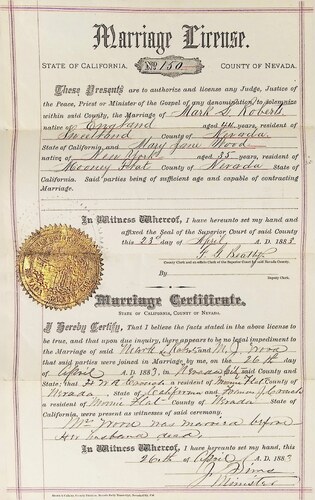 Marriage License.
STATE OF CALIFORNIA, No. 150 COUNTY OF NEVADA.
These Presents are to authorize and license any Judge, Justice
of the Peace, Priest or Minister of the Gospel of any denomination to solemnize
within said County, the Marriage of Mark S. Roberts
native of England aged 44 years, resident of
Sweetland County of Nevada
State of California, and Mary Jane Wood
native of New York aged 35 years, resident of
Mooney Flat County of Nevada State of
California. Said parties being of sufficient age and capable of contracting
Marriage.
In Witness Whereof, I have hereunto set my hand and
affixed the Seal of the Superior Court of said County
this 23d day of April A. D. 1883
F. G. Beatty
County Clerk and ex officio Clerk of the Superior Court in and said Nevada County.
By
Deputy Clerk.
Marriage Certificate.
STATE OF CALIFORNIA, COUNTY OF NEVADA.
I Hereby Certify, That I believe the facts stated in the above license
to be true, and that upon due inquiry, there appears to be no legal impediment
to the Marriage of said and M. J. Wood
that said parties were joined in Marriage, by me, on the 26th of
April A. D. 1883, in Nevada City said County and
State; that a resident of Flat County of
Nevada, State of California and
a resident of Flat County of Nevada State of
California, were present as witnesses of said ceremony.
Mrs Wood was married before
Her husband dead
In Witness Whereof, I have hereunto set my hand this
26th of April A. D. 1883
J. Sims
Minister